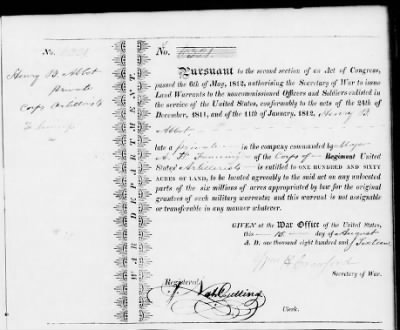 No. 6321
Henry B. Abbot
Private
Corps Artillerists
WAR DEPARTMENT.
No. 6321
Pursuant to the second section of an Act of Congress,
passed the 6th of May, 1812, authorising the Secretary of War to issue
Land Warrants to the noncommissioned Officers and Soldiers enlisted in
the service of the United States, conformably to the acts of the 24th of
December, 1811, and of the 11th of January, 1812, Henry B.
Abbot
late a private in the company commanded by Major
of the Corps of Regiment United
States' Artillerists is entitled to ONE HUNDRED AND SIXTY
ACRES OF LAND, to be located agreeably to the said act on any unlocated
parts of the six millions of acres appropriated by law for the original
grantees of such military warrants; and this warrant is not assignable
or transferable in any manner whatever.
GIVEN at the War Office of the United States,
this 15 day of August
A. D. one thousand eight hundred and Sixteen
Wm H Crawford
Secretary of War.
Registered
Cutting
Clerk.